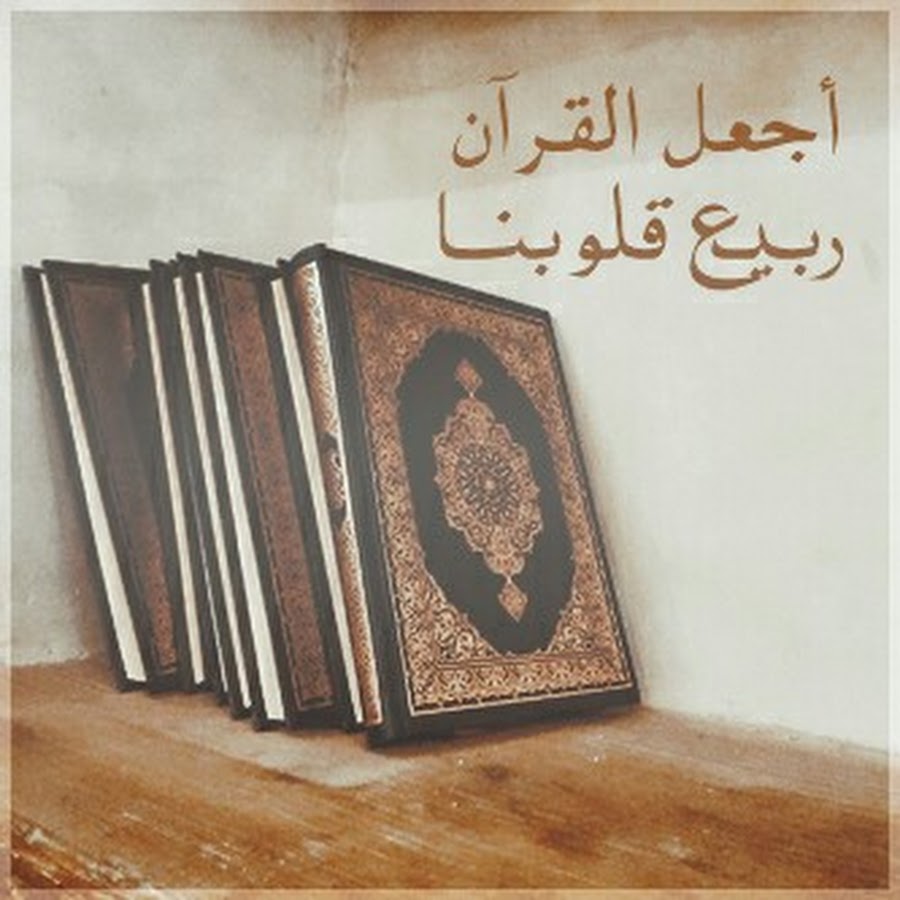 أجعل القرآن
ربيع قلوبنا